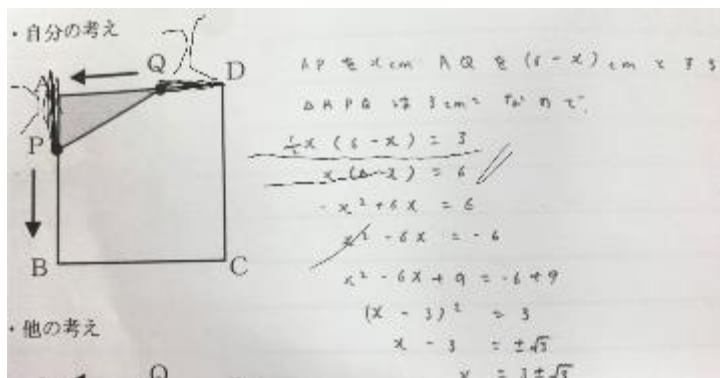 ・自分の考え
Q D
A
P
B C
APをxcm AQを(6-x)cmとする
△APQは3cm²なので、
½x(6-x)=3
x(6-x)=6
-x²+6x=6
x²-6x=-6
x²-6x+9=-6+9
(x-3)²=3
x-3=±√3
x=3±√3
・他の考え
Q